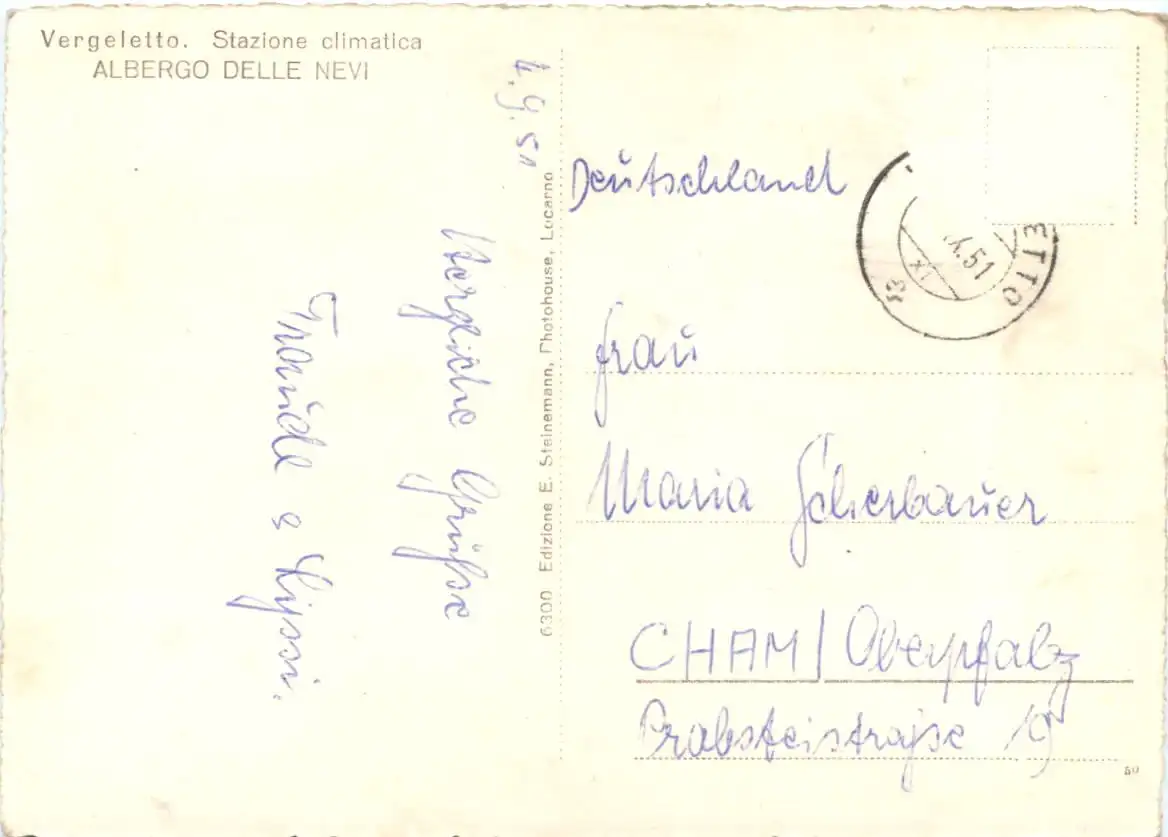 Vergeletto. Stazione climatica
ALBERGO DELLE NEVI
4.9.51
Herzliche Grüße
Traudl &
6300 Edizione E. Steinemann, Photohouse, Locarno
Deutschland
ETTO
X.51
XI
Frau
Maria Scherbauer
CHAM/Oberpfalz
Probsteistraße 19
50